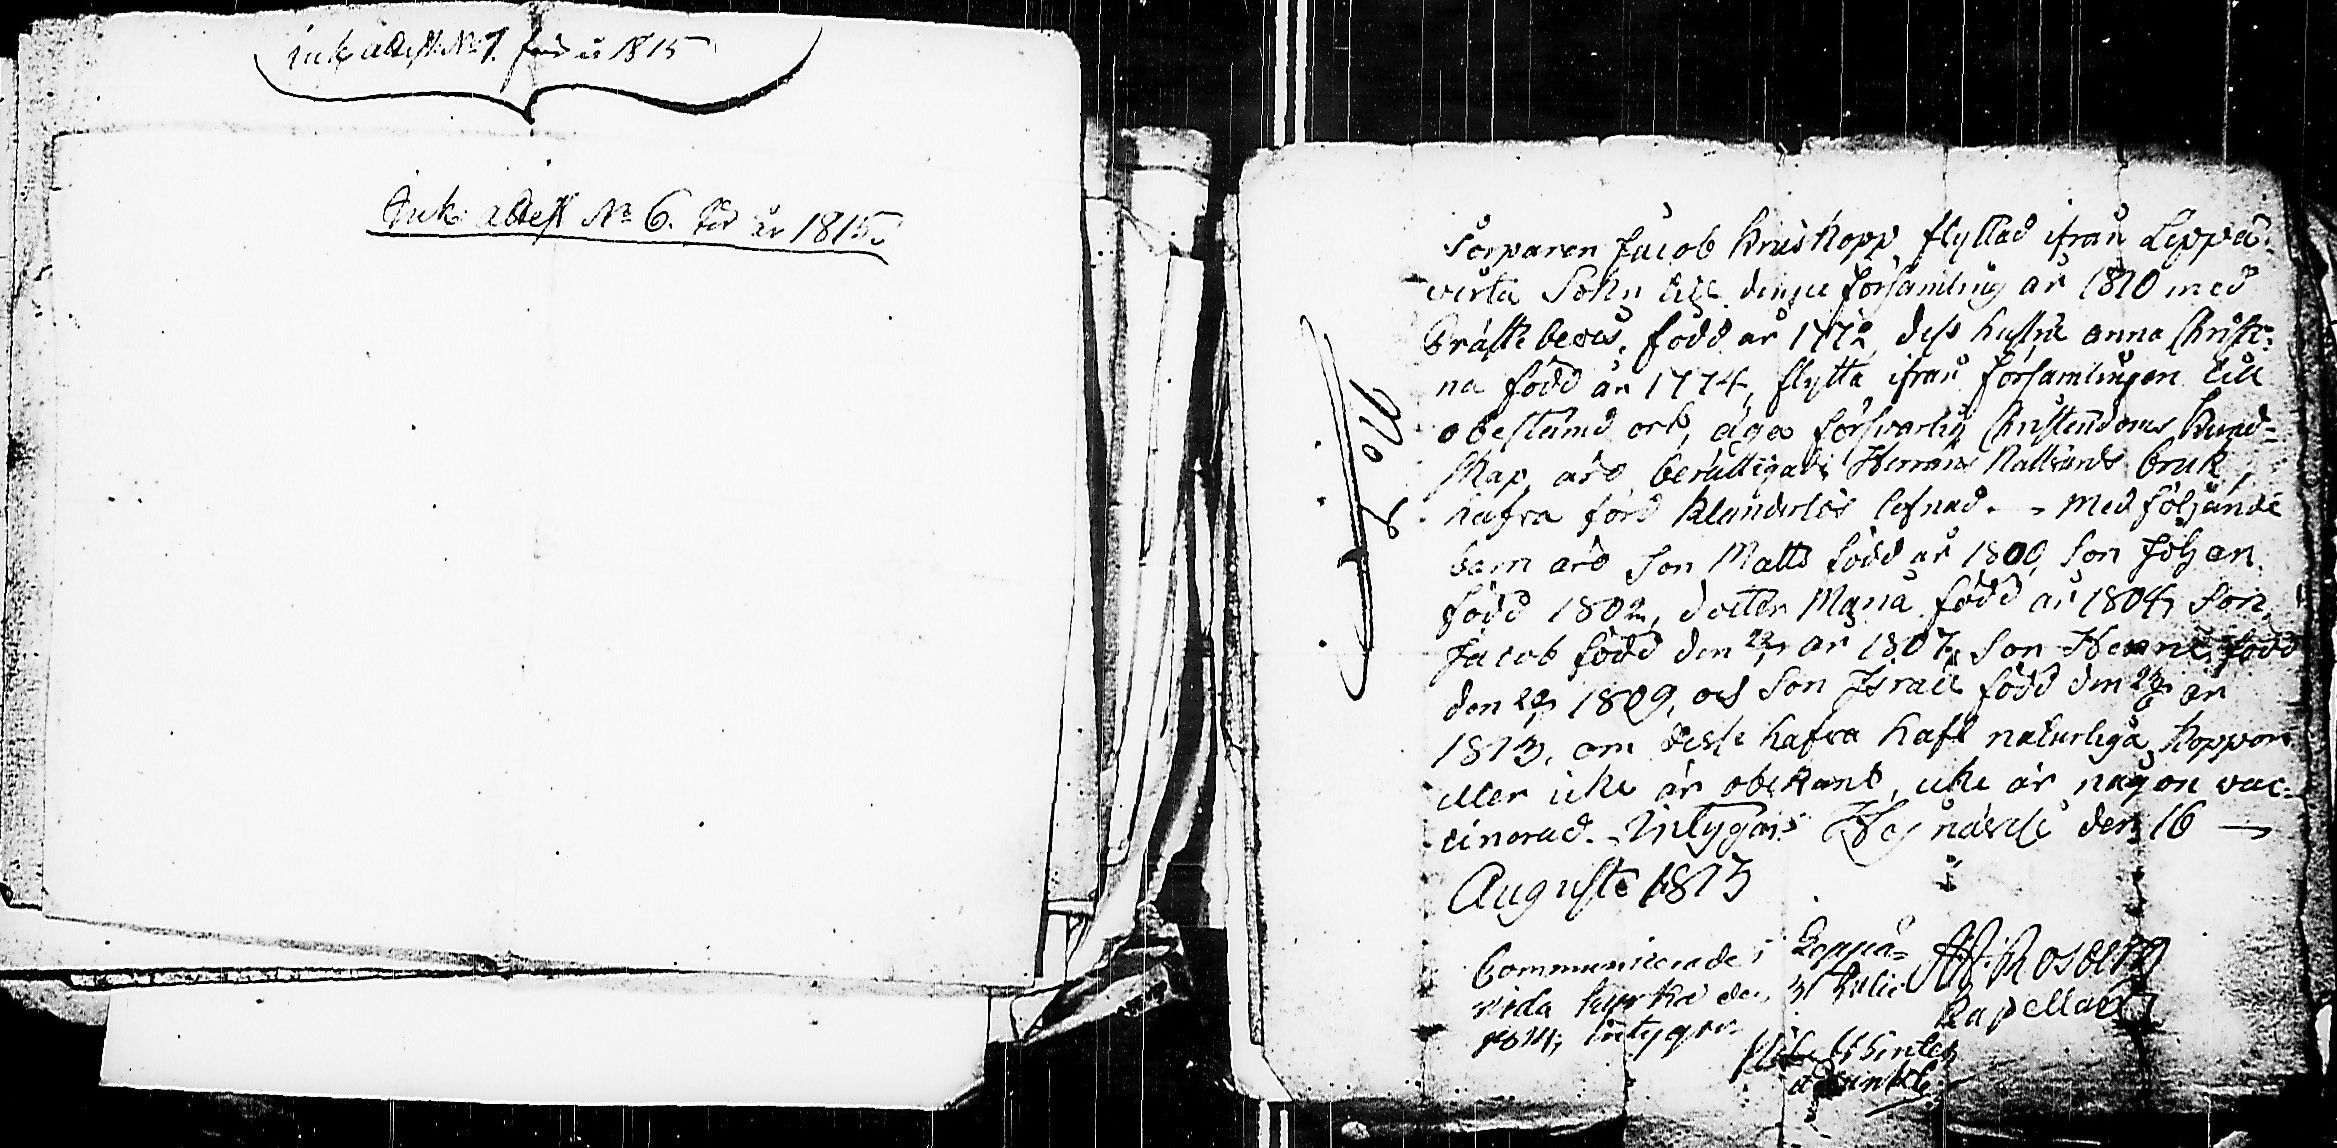 Ink: attest N:o 7. för år 1815
Ink: attest N:o 6. för år 1815.
N:o 6
Torparen Jacob Kruskopp flyttad ifrån Leppä-
virta Sokn till denne församling år 1810 med
Prästebevis, född år 1772, dess hustru Anna Christi-
na född år 1774, flytta ifrån församlingen till
obestämd ort, äga försvarlig Christendoms Kund-
skap, äro berättigade Herrans Nattvards bruk,
hafva förd klanderlös lefnad. - Medföljande
barn äro Son Matts född år 1800, Son Johan
född 1802, dotter Maria född år 1804, Son
Jacob född den år 1807, Son född
den 1809, och Son Israel född den år
1813, om desse hafva haft naturliga koppor
eller icke är obekant, icke är någon vac-
cinerad. - Intygas den 16
Augusti 1813
Communicerade i Leppä-
virta kyrka den Julii
1814, intygar
Rosberg
Kapellan